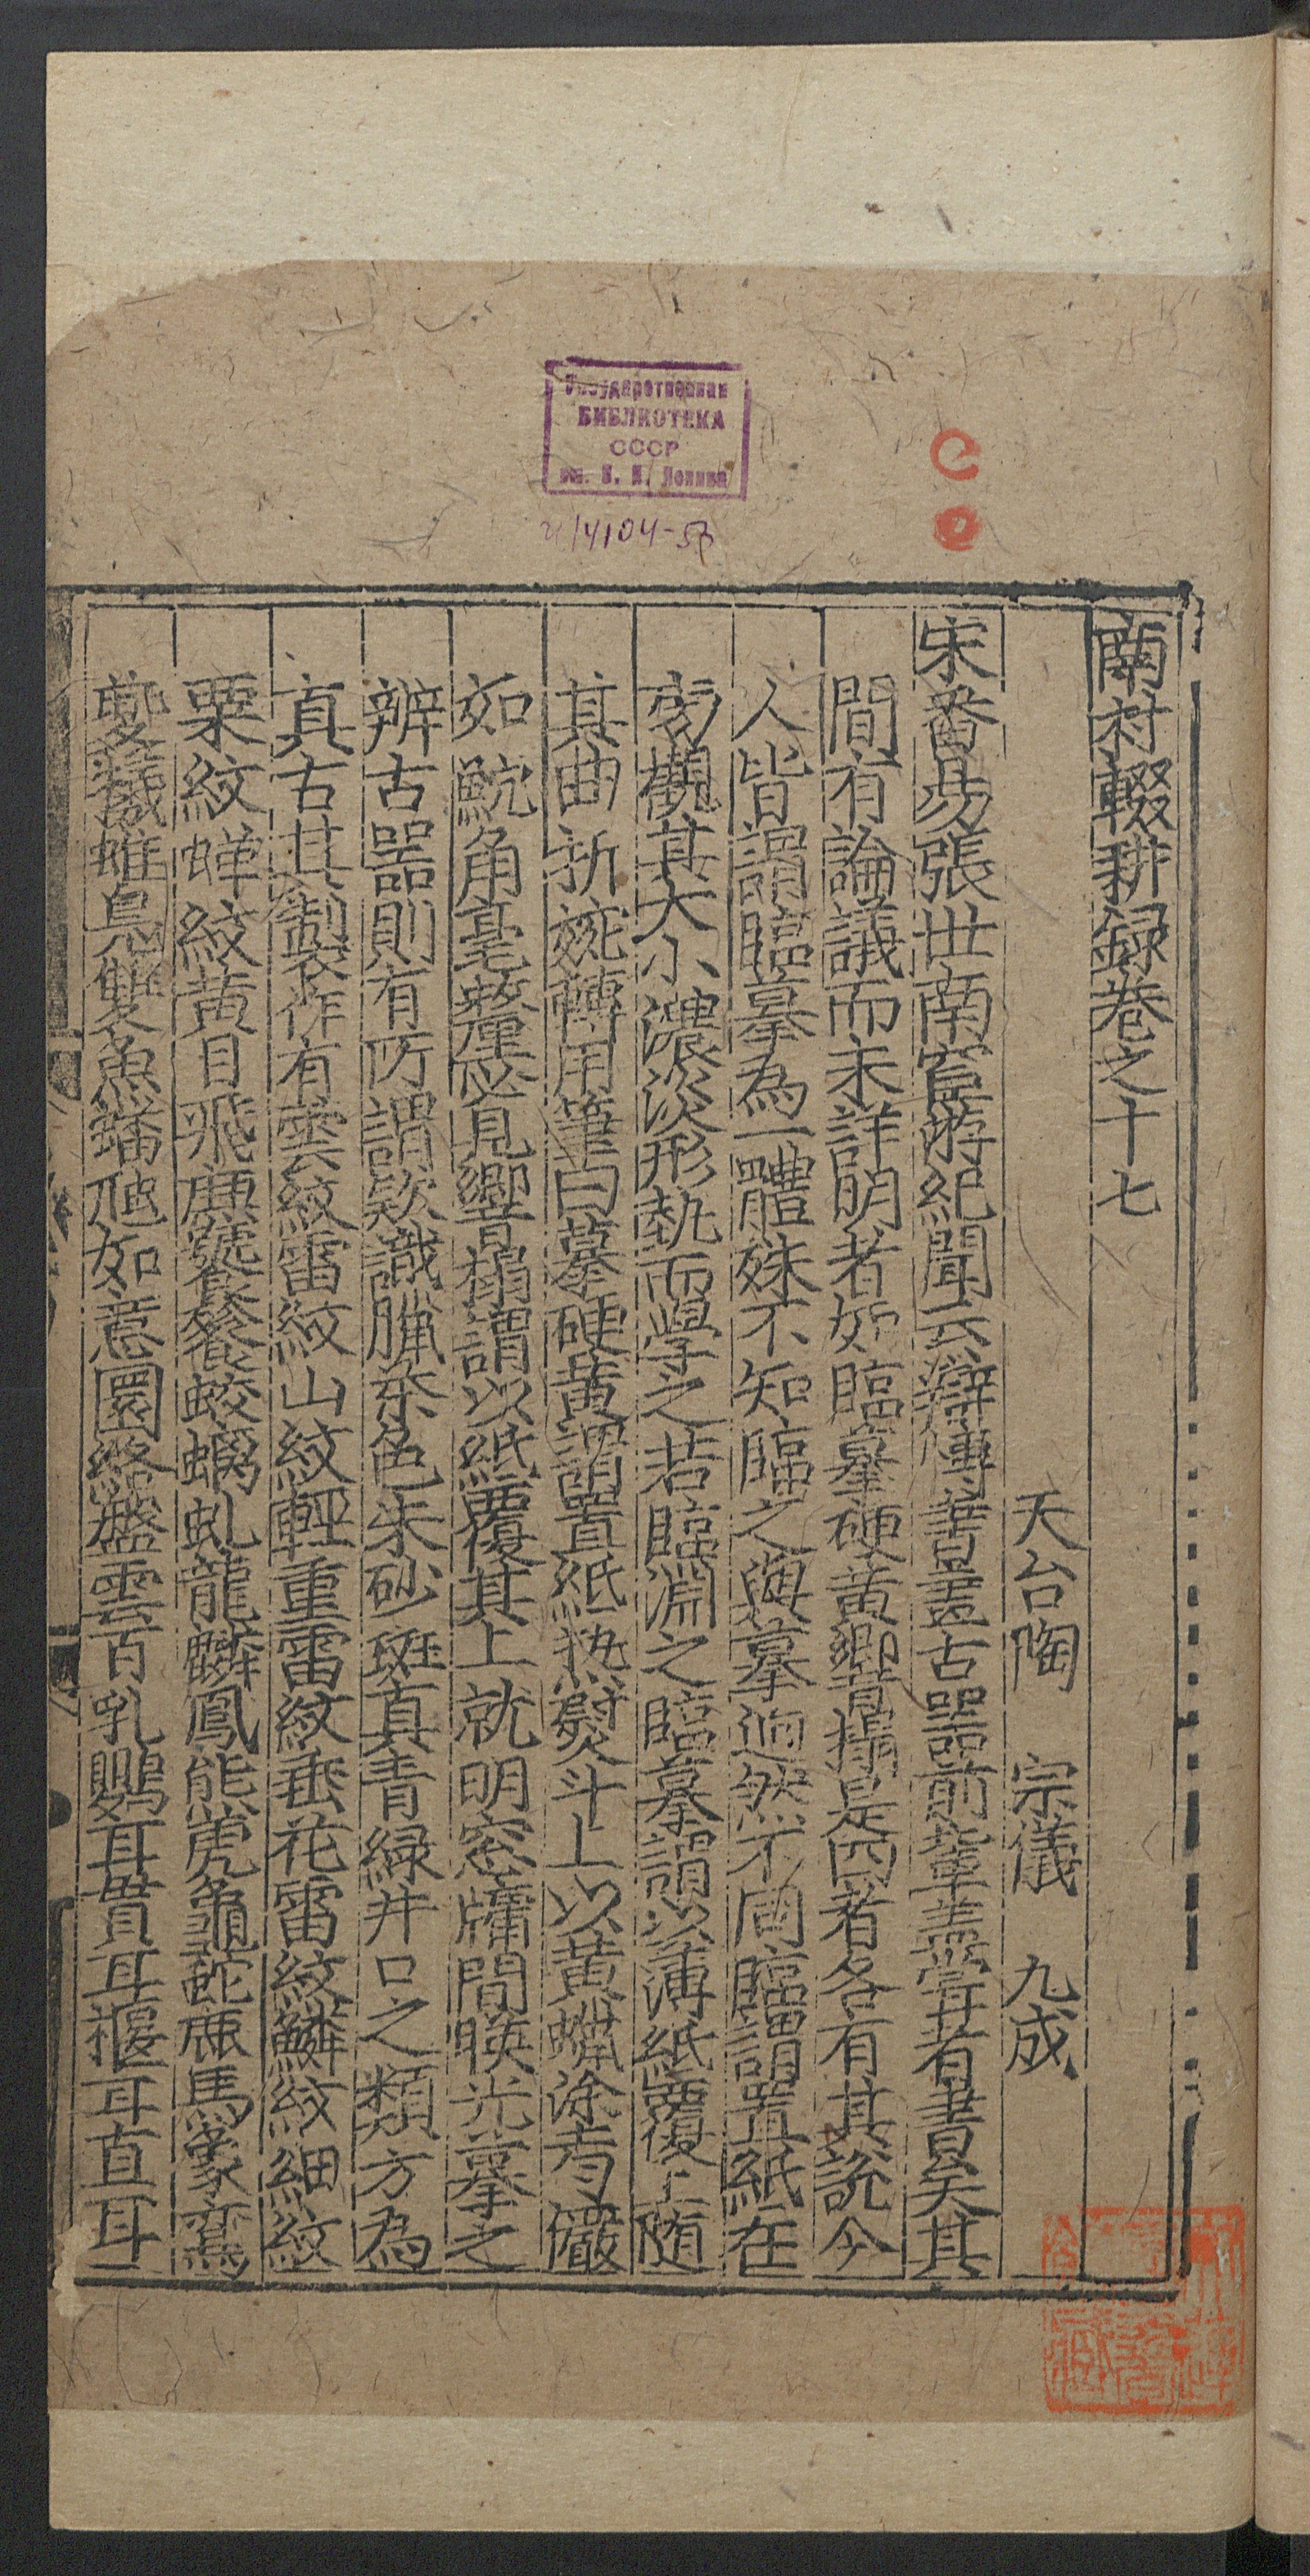 Государственная
БИБЛИОТЕКА
СССР
им. В. И. Ленина
И 14104-53
南村輟耕録卷之十七
天台陶 宗儀 九成
宋番昜張丗南宦游紀聞云辯愽書畫古噐前輩盖甞著書矣其
間有論議而未詳明者如臨摹硬黄響搨是四者各有其説今
人皆謂臨摹為一體殊不知臨之與摹逈然不同臨謂置紙在
旁觀其大小濃淡形勢而學之若臨淵之臨摹謂以薄紙覆上随
其曲折婉轉用筆曰摹硬黄謂置紙热熨斗上以黄蠟徐考儼
如魫角毫釐必見響搨謂以紙覆其上就明窓牖間映光摹之
辨古噐則有所謂欵識臘茶色朱砂斑真青緑井口之類方為
真古其製作有雲紋雷紋山紋輕重雷紋垂花雷紋鱗紋細紋
粟紋蟬紋黄目飛廉饕餮蛟螭虬龍麟鳳熊虎龜蛇鹿馬象鸞
夔犧蜼鳬雙魚蟠虺如意圜絡盤雲百乳鸚耳貫耳偃耳直耳